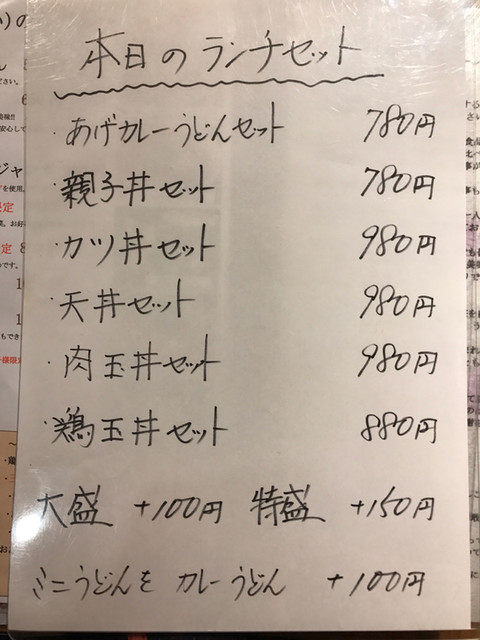 本日のランチセット
・あげカレーうどんセット 780円
・親子丼セット 780円
・カツ丼セット 980円
・天丼セット 980円
・肉玉丼セット 980円
・鶏玉丼セット 880円
大盛 +100円 特盛 +150円
ミニうどんを カレーうどん +100円